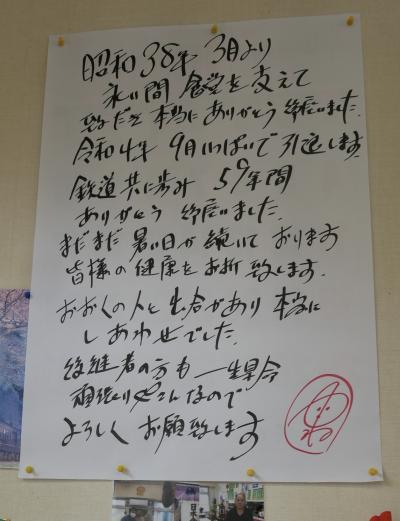 昭和38年 3月より
永い間 食堂を支えて
致だき 本当にありがとう御座いました.
令和4年 9月いっぱいで引退します.
鉄道共に歩み 59年間
ありがとう 御座いました.
まだまだ 暑い日が続いております
皆様の健康をお祈致します.
おおくの人と出会があり 本当に
しあわせでした.
後継者の方も 一生県命
頑張り なので
よろしく お願致します